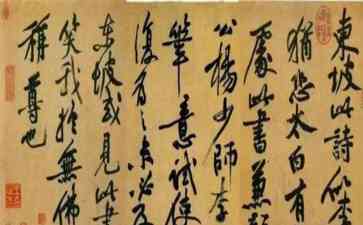 東坡此詩似李
猶恐太白有
處此書兼顏
公楊少師李
筆意試使
復為之未必及
東坡或見此書
笑我於無佛
稱尊也